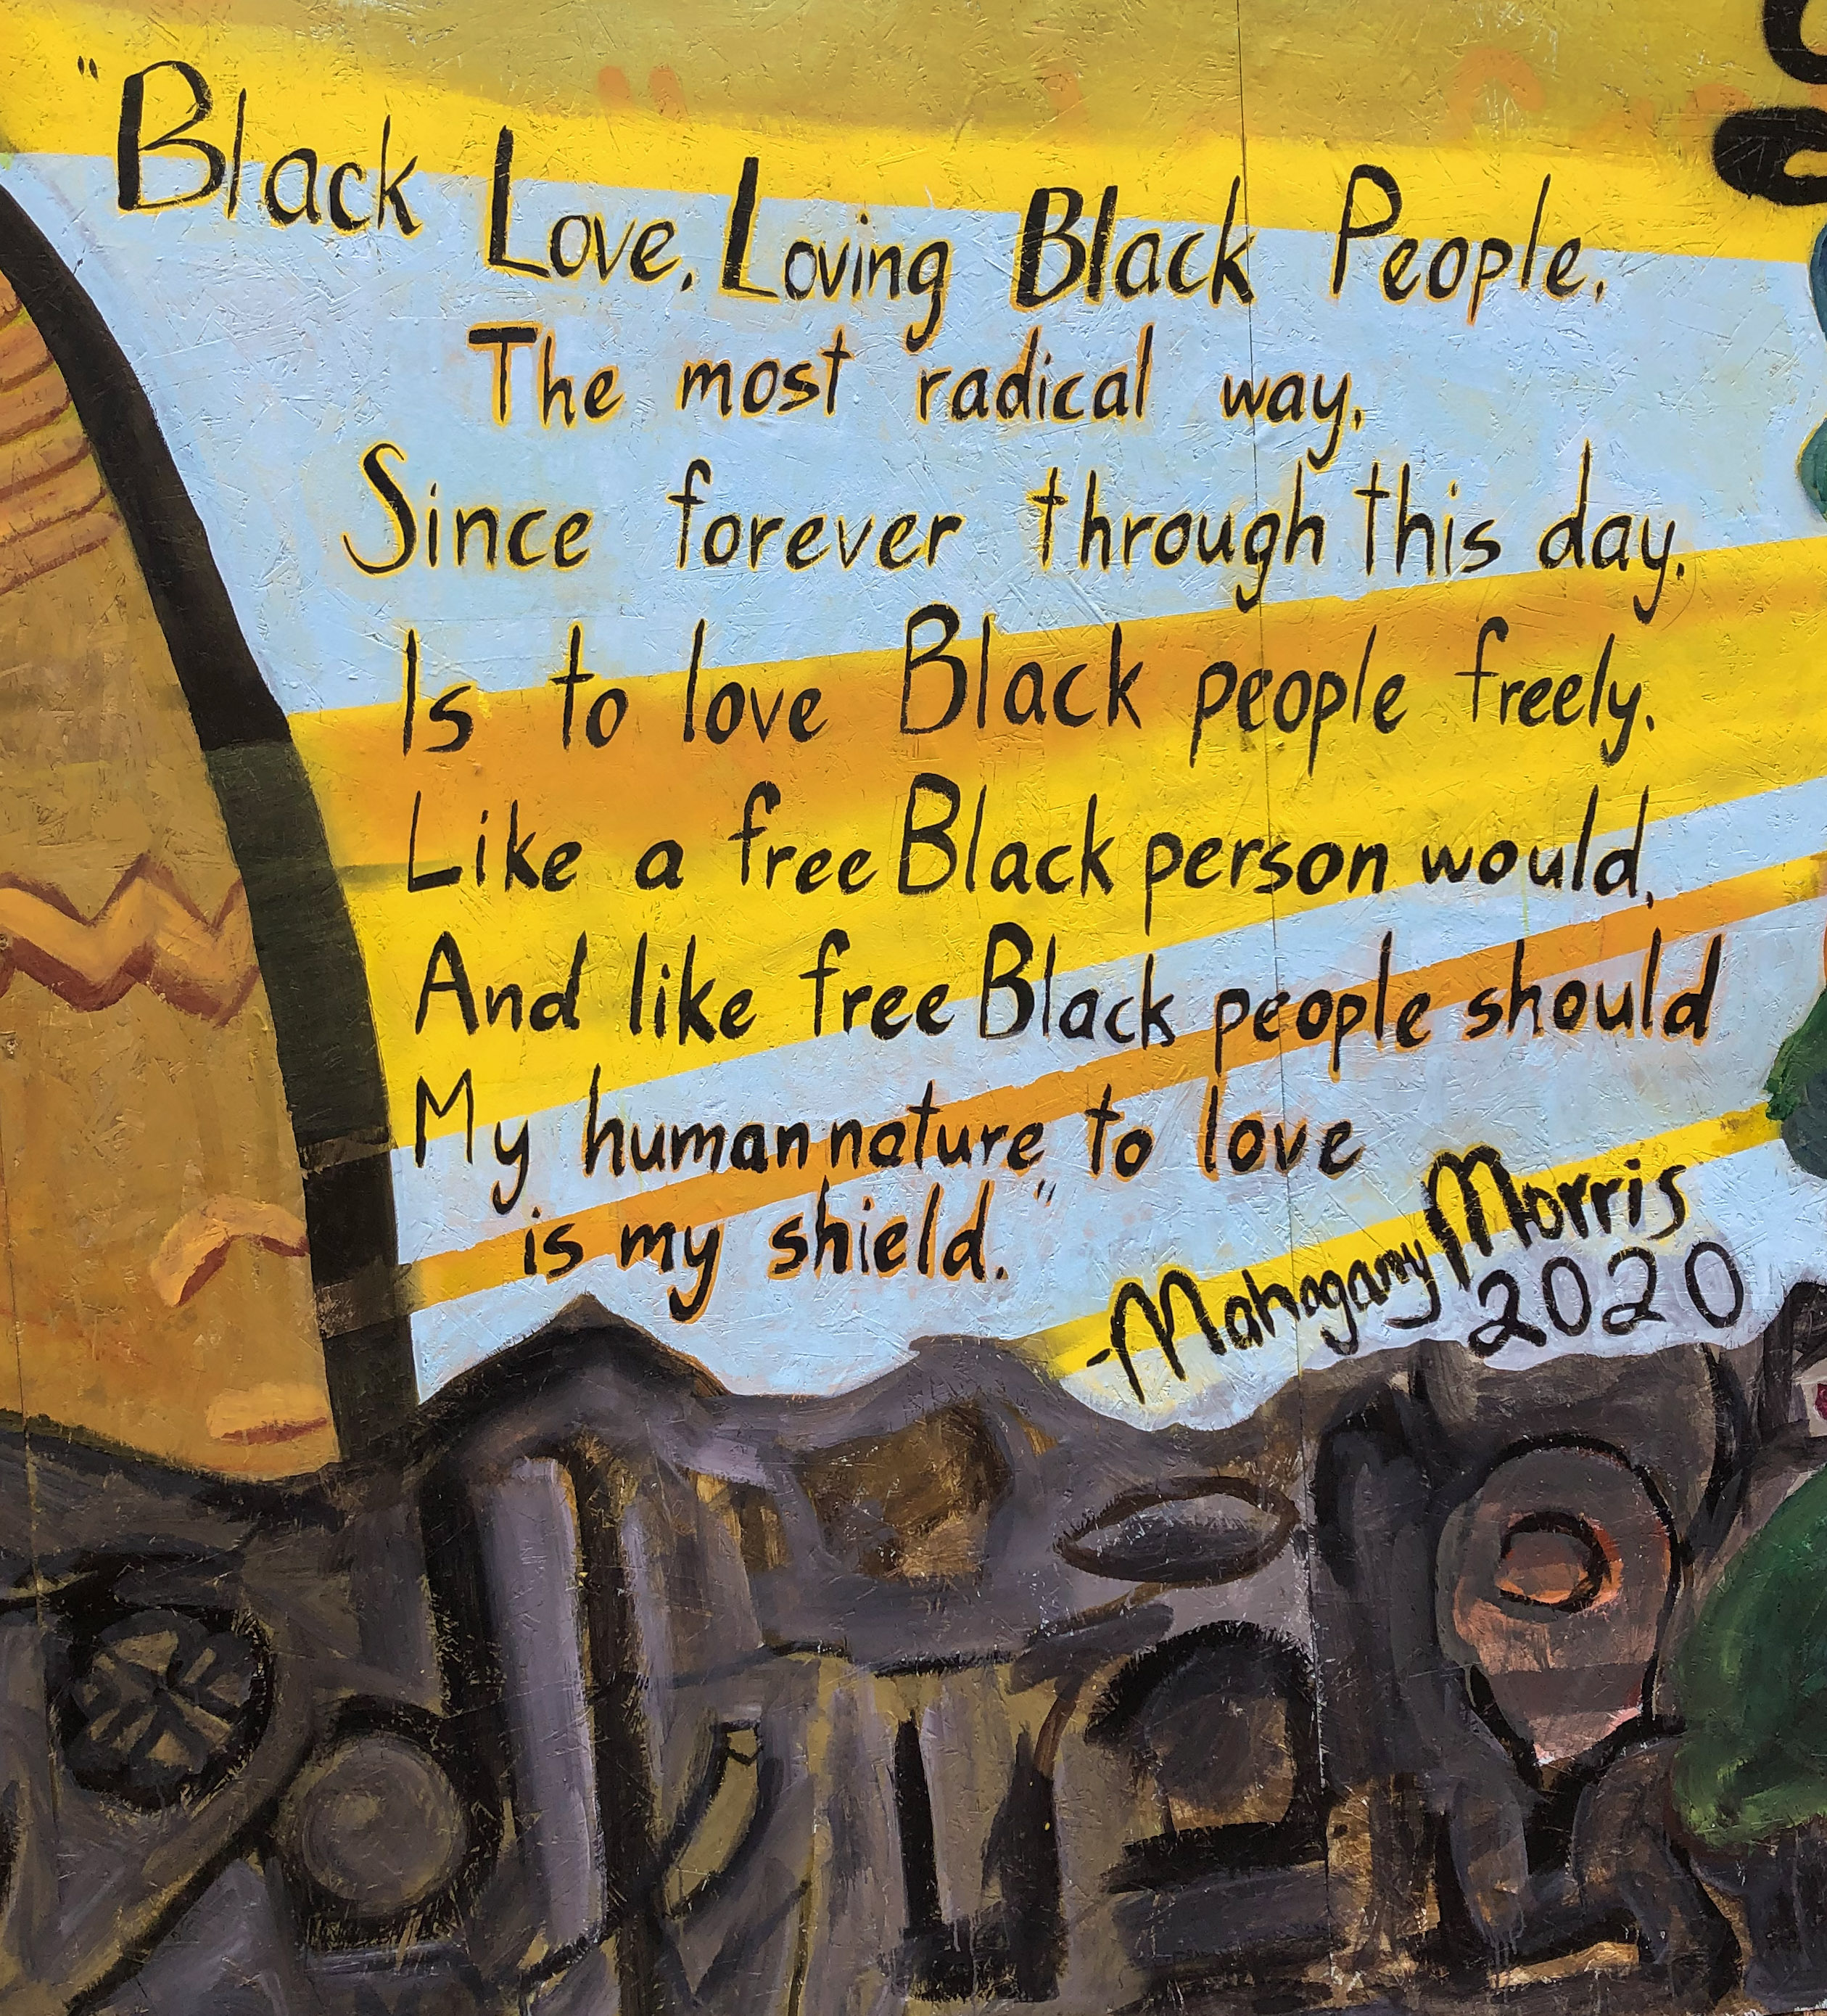 "Black Love, Loving Black People,
The most radical way,
Since forever through this day.
Is to love Black people freely.
Like a free Black person would,
And like free Black people should
My human nature to love
is my shield."
-Mahogany Morris
2020